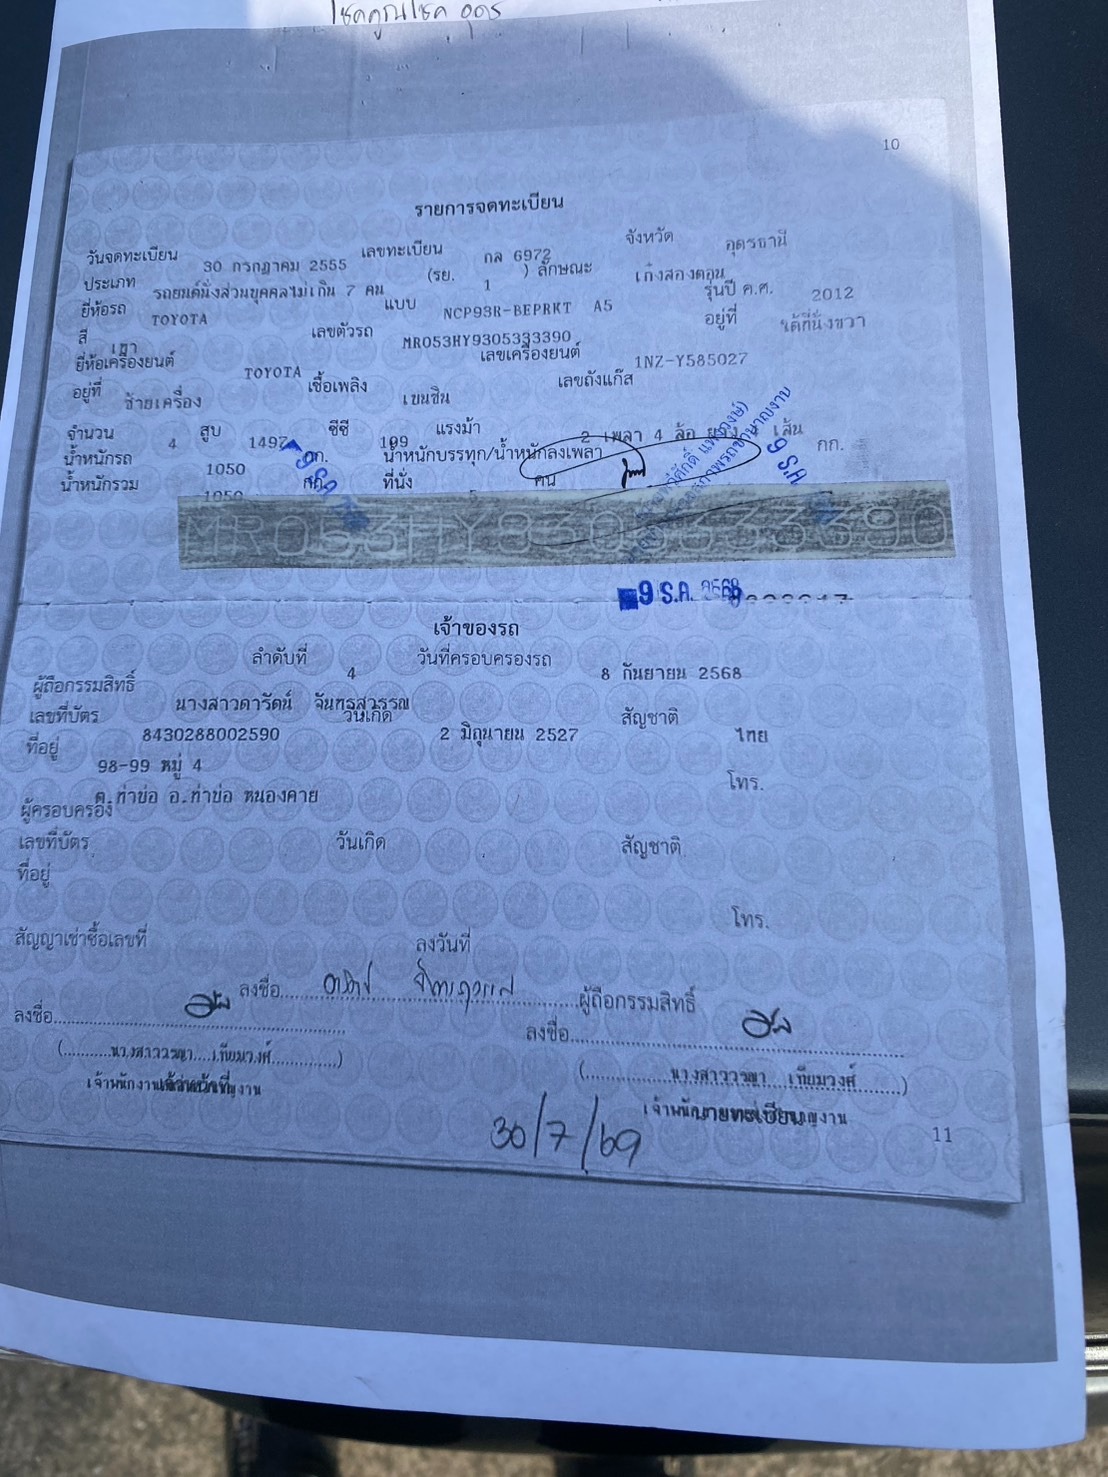 โชคคูณโชค อุดร
10
รายการจดทะเบียน
วันจดทะเบียน 30 กรกฎาคม 2555 เลขทะเบียน กล 6972 จังหวัด อุดรธานี
ประเภท รถยนต์นั่งส่วนบุคคลไม่เกิน 7 คน (รย. 1 ) ลักษณะ เก๋งสองตอน
ยี่ห้อรถ TOYOTA แบบ NCP93R-BEPRKT A5 รุ่นปี ค.ศ. 2012
สี เทา เลขตัวรถ MR053HY9305333390 อยู่ที่ ใต้ที่นั่งขวา
ยี่ห้อเครื่องยนต์ TOYOTA เลขเครื่องยนต์ 1NZ-Y585027
อยู่ที่ ซ้ายเครื่อง เชื้อเพลิง เบนซิน เลขถังแก๊ส
จำนวน 4 สูบ 1497 ซีซี 109 แรงม้า 2 เพลา 4 ล้อ ยาง เส้น
น้ำหนักรถ 1050 กก. น้ำหนักบรรทุก/น้ำหนักลงเพลา กก.
น้ำหนักรวม 1050 กก. ที่นั่ง 5 คน
MR053HY9305333390
9 ธ.ค. 2568
เจ้าของรถ
ลำดับที่ 4 วันที่ครอบครองรถ 8 กันยายน 2568
ผู้ถือกรรมสิทธิ์ นางสาวดารัตน์ จันทรสุวรรณ
เลขที่บัตร 8430288002590 วันเกิด 2 มิถุนายน 2527 สัญชาติ ไทย
ที่อยู่ 98-99 หมู่ 4
ต.ท่าบ่อ อ.ท่าบ่อ หนองคาย โทร.
ผู้ครอบครอง
เลขที่บัตร วันเกิด สัญชาติ
ที่อยู่
โทร.
สัญญาเช่าซื้อเลขที่ ลงวันที่
ลงชื่อ ผู้ถือกรรมสิทธิ์
ลงชื่อ ลงชื่อ
(นางสาววรฆา เทียมวงศ์) (นางสาววรฆา เทียมวงศ์)
30/7/69
11